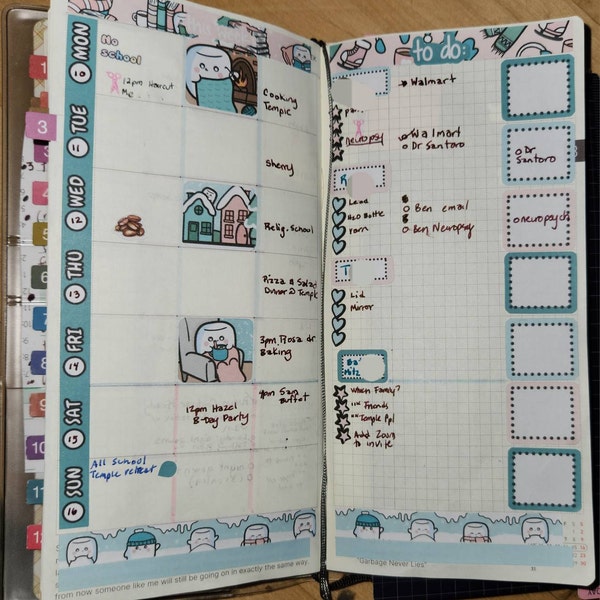 MON
10
No
school
12pm Haircut
Me!
Cooking
Temple
TUE
11
Sherry
WED
12
Relig. School
THU
13
Pizza & Salad
Dinner @ Temple
FRI
14
3pm Rosa dr
Baking
SAT
15
12pm Hazel
B-Day Party
Sam
Buffet
SUN
16
All School
Temple retreat
from now someone like me will still be going on in exactly the same way.
to do:
Walmart
neuropsy
Walmart
Dr Santoro
Dr
Santoro
Lead
H2O Bottle
Yarn
Ben email
Ben Neuropsy
neuropsych
T
Lid
Mirror
Ba
Mitz
Which Family?
"" Friends
"" Temple Ppl
Add Zoom
to invite
"Garbage Never Lies"
3
4
5
6
7
8
9
10
11